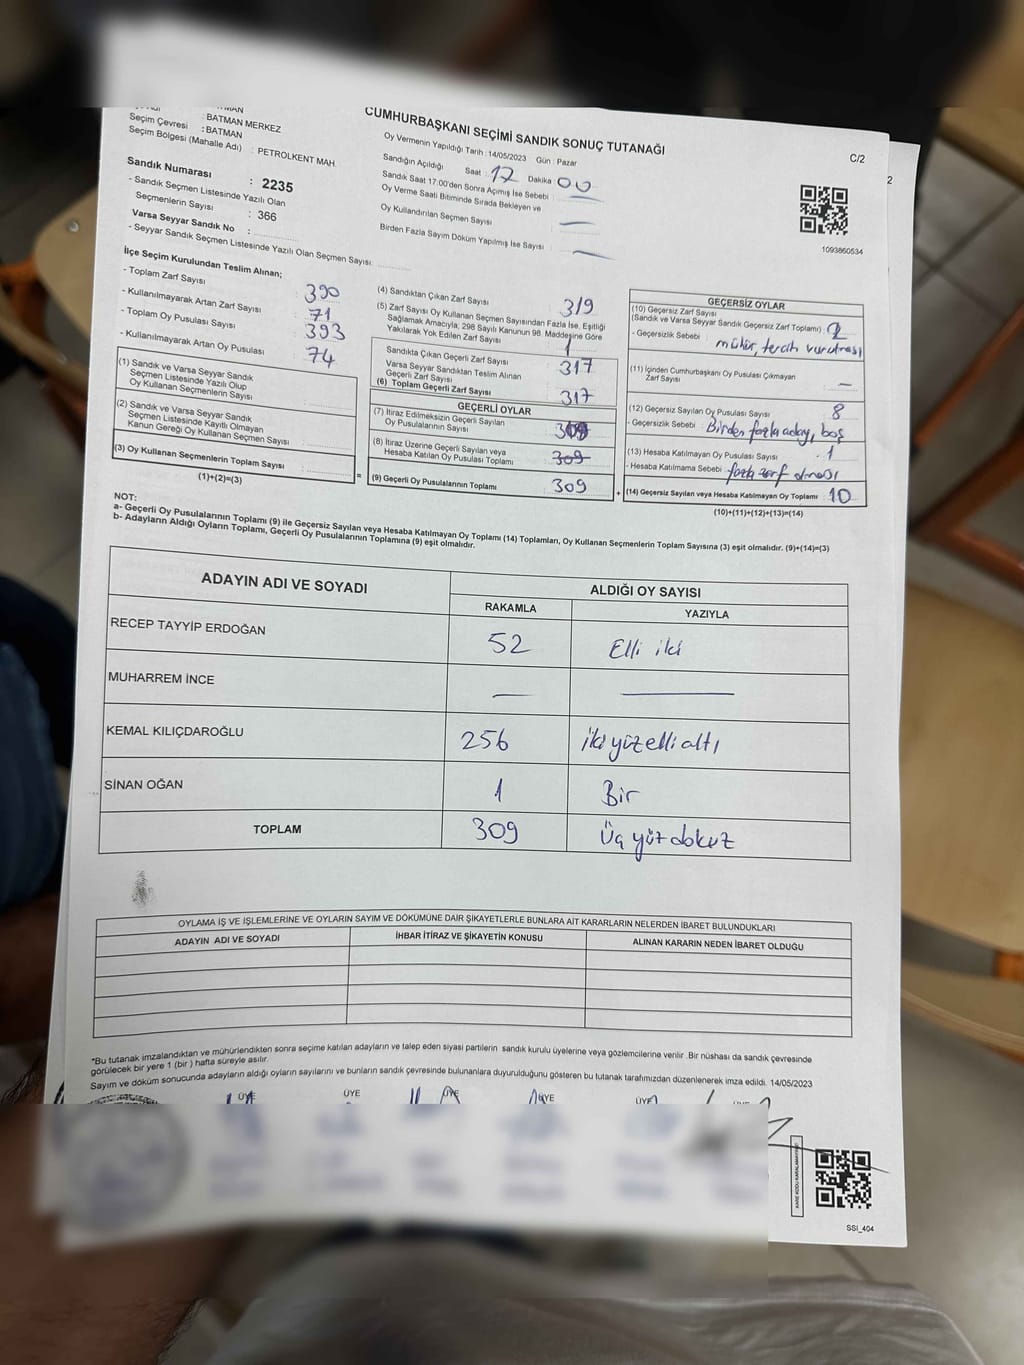 CUMHURBAŞKANI SEÇİMİ SANDIK SONUÇ TUTANAĞI
C/2
Seçim Çevresi : BATMAN MERKEZ
: BATMAN
Seçim Bölgesi (Mahalle Adı) : PETROLKENT MAH.
Sandık Numarası : 2235
- Sandık Seçmen Listesinde Yazılı Olan
Seçmenlerin Sayısı : 366
Varsa Seyyar Sandık No :
- Seyyar Sandık Seçmen Listesinde Yazılı Olan Seçmen Sayısı:
Oy Vermenin Yapıldığı Tarih : 14/05/2023 Gün : Pazar
Sandığın Açıldığı Saat : 17 Dakika : 00
Sandık Saat 17.00'den Sonra Açılmış İse Sebebi : —
Oy Verme Saati Bitiminde Sırada Bekleyen ve
Oy Kullandırılan Seçmen Sayısı : —
Birden Fazla Sayım Döküm Yapılmış İse Sayısı : —
1093860534
2
İlçe Seçim Kurulundan Teslim Alınan;
- Toplam Zarf Sayısı : 390
- Kullanılmayarak Artan Zarf Sayısı : 71
- Toplam Oy Pusulası Sayısı : 393
- Kullanılmayarak Artan Oy Pusulası : 74
(1) Sandık ve Varsa Seyyar Sandık
Seçmen Listesinde Yazılı Olup
Oy Kullanan Seçmenlerin Sayısı
(2) Sandık ve Varsa Seyyar Sandık
Seçmen Listesinde Kayıtlı Olmayan
Kanun Gereği Oy Kullanan Seçmen Sayısı
(3) Oy Kullanan Seçmenlerin Toplam Sayısı :
(1)+(2)=(3)
=
(4) Sandıktan Çıkan Zarf Sayısı : 319
(5) Zarf Sayısı Oy Kullanan Seçmen Sayısından Fazla İse, Eşitliği
Sağlamak Amacıyla; 298 Sayılı Kanunun 98. Maddesine Göre
Yakılarak Yok Edilen Zarf Sayısı : 1
Sandıkta Çıkan Geçerli Zarf Sayısı : 317
Varsa Seyyar Sandıktan Teslim Alınan
Geçerli Zarf Sayısı
(6) Toplam Geçerli Zarf Sayısı : 317
GEÇERLİ OYLAR
(7) İtiraz Edilmeksizin Geçerli Sayılan
Oy Pusulalarının Sayısı : 309
(8) İtiraz Üzerine Geçerli Sayılan veya
Hesaba Katılan Oy Pusulası Toplamı : 309
(9) Geçerli Oy Pusulalarının Toplamı : 309
+
GEÇERSİZ OYLAR
(10) Geçersiz Zarf Sayısı
(Sandık ve Varsa Seyyar Sandık Geçersiz Zarf Toplamı) : 2
- Geçersizlik Sebebi : mühür, tercih vurulması
(11) İçinden Cumhurbaşkanı Oy Pusulası Çıkmayan
Zarf Sayısı : —
(12) Geçersiz Sayılan Oy Pusulası Sayısı : 8
- Geçersizlik Sebebi : Birden fazla aday, boş
(13) Hesaba Katılmayan Oy Pusulası Sayısı : 1
- Hesaba Katılmama Sebebi : fazla zarf olması
(14) Geçersiz Sayılan veya Hesaba Katılmayan Oy Toplamı : 10
(10)+(11)+(12)+(13)=(14)
NOT:
a- Geçerli Oy Pusulalarının Toplamı (9) ile Geçersiz Sayılan veya Hesaba Katılmayan Oy Toplamı (14) Toplamları, Oy Kullanan Seçmenlerin Toplam Sayısına (3) eşit olmalıdır. (9)+(14)=(3)
b- Adayların Aldığı Oyların Toplamı, Geçerli Oy Pusulalarının Toplamına (9) eşit olmalıdır.
ADAYIN ADI VE SOYADI ALDIĞI OY SAYISI
RAKAMLA YAZIYLA
RECEP TAYYİP ERDOĞAN 52 Elli iki
MUHARREM İNCE — —
KEMAL KILIÇDAROĞLU 256 iki yüz elli altı
SİNAN OĞAN 1 Bir
TOPLAM 309 Üç yüz dokuz
OYLAMA İŞ VE İŞLEMLERİNE VE OYLARIN SAYIM VE DÖKÜMÜNE DAİR ŞİKAYETLERLE BUNLARA AİT KARARLARIN NELERDEN İBARET BULUNDUKLARI
ADAYIN ADI VE SOYADI İHBAR İTİRAZ VE ŞİKAYETİN KONUSU ALINAN KARARIN NEDEN İBARET OLDUĞU
*Bu tutanak imzalandıktan ve mühürlendikten sonra seçime katılan adayların ve talep eden siyasi partilerin sandık kurulu üyelerine veya gözlemcilerine verilir .Bir nüshası da sandık çevresinde
görülecek bir yere 1 (bir ) hafta süreyle asılır.
Sayım ve döküm sonucunda adayların aldığı oyların sayılarını ve bunların sandık çevresinde bulunanlara duyurulduğunu gösteren bu tutanak tarafımızdan düzenlenerek imza edildi. 14/05/2023
ÜYE ÜYE ÜYE ÜYE ÜYE
SSI_404